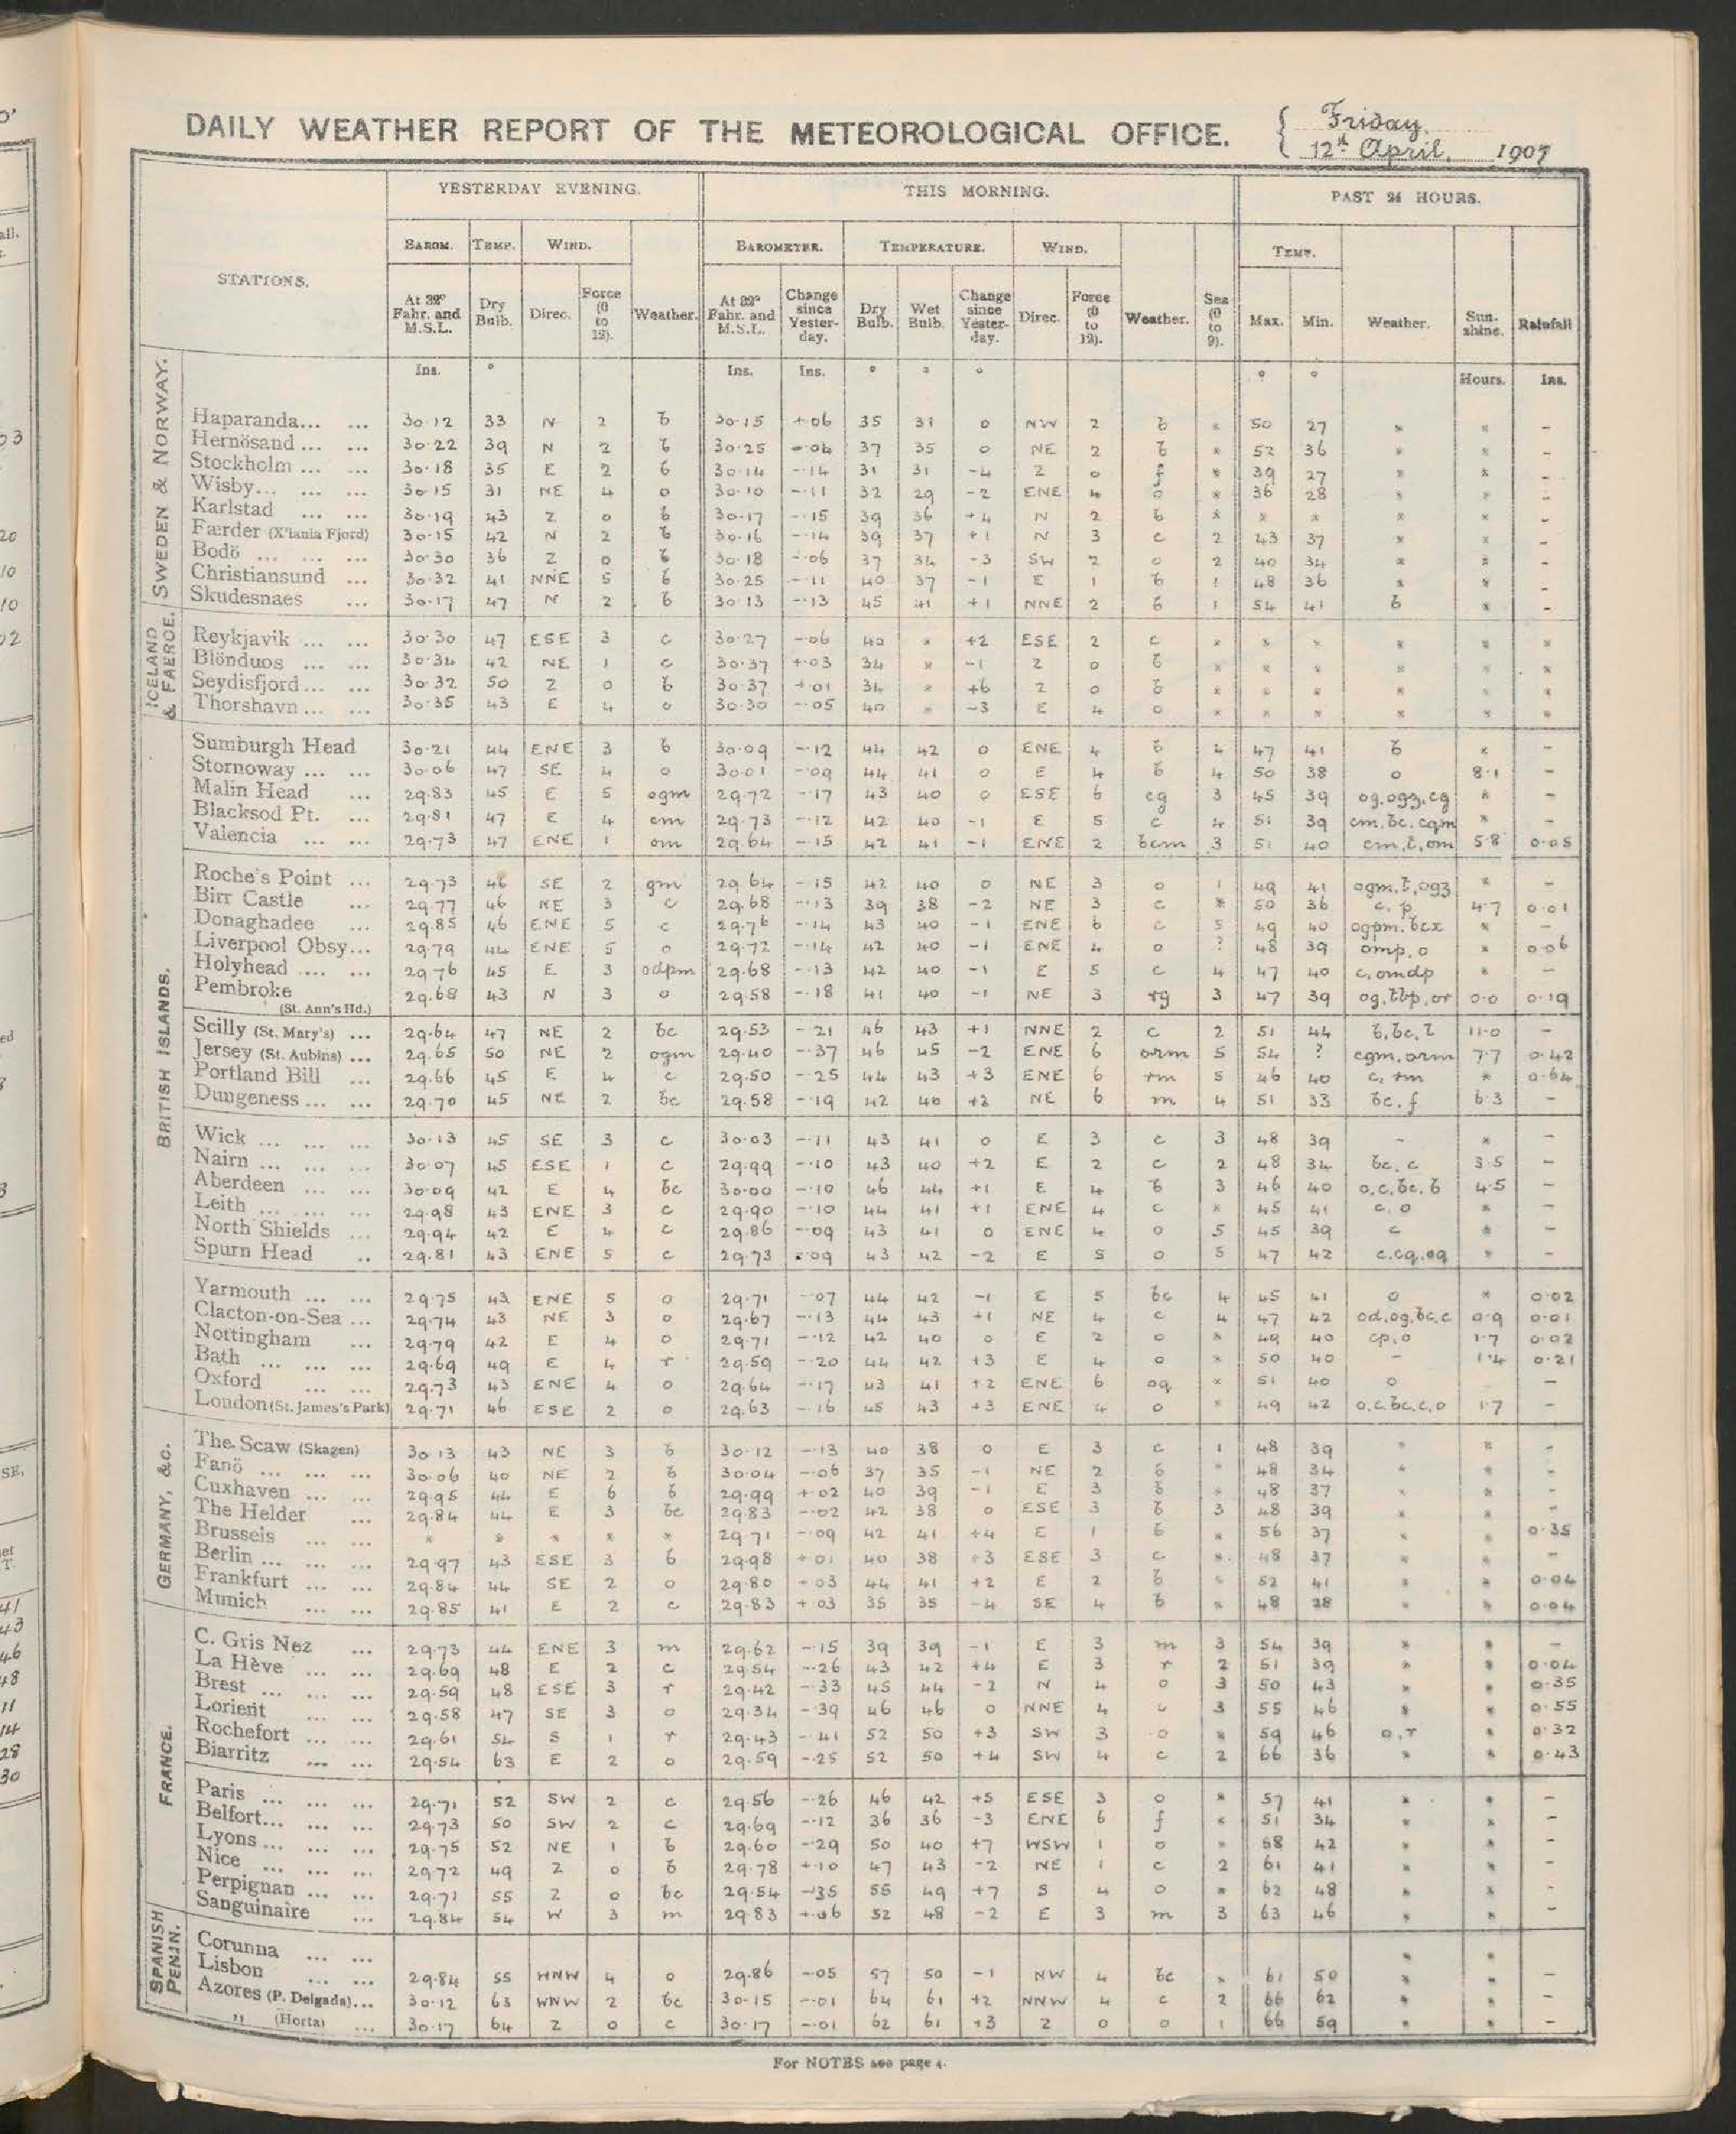 DAILY WEATHER REPORT OF THE METEOROLOGICAL OFFICE.
Friday,
12th April, 1907
YESTERDAY EVENING. THIS MORNING. PAST 24 HOURS.
STATIONS. BAROM. TEMP. WIND. Weather. BAROMETER. TEMPERATURE. WIND. Weather. Sea (0 to 9). TEMP. Weather. Sunshine. Rainfall
At 32° Fahr. and M.S.L. Dry Bulb. Direc. Force (0 to 12). At 32° Fahr. and M.S.L. Change since Yesterday. Dry Bulb. Wet Bulb. Change since Yesterday. Direc. Force (0 to 12). Max. Min.
Ins. ° Ins. Ins. ° ° ° ° ° Hours. Ins.
SWEDEN & NORWAY.
Haparanda... 30·12 33 N 2 b 30·15 +·06 35 31 0 NW 2 b * 50 27 * * -
Hernösand ... 30·22 39 N 2 b 30·25 37 35 0 NE 2 b * 52 36 * * -
Stockholm ... 30·18 35 E 2 b 30·14 -·14 31 31 -4 Z 0 f * 39 27 * * -
Wisby... 30·15 31 NE 4 o 30·10 -·11 32 29 -2 ENE 4 o * 36 28 * * -
Karlstad 30·19 43 Z 0 b 30·17 -·15 39 36 +4 N 2 b * * * * * -
Færder (X'iania Fjord) 30·15 42 N 2 b 30·16 -·14 39 37 +1 N 3 c 2 43 37 * * -
Bodö ... 30·30 36 Z 0 b 30·18 -·06 37 34 -3 SW 2 o 2 40 34 * * -
Christiansund ... 30·32 41 NNE 5 b 30·25 -·11 40 37 -1 E 1 b 1 48 36 * * -
Skudesnaes ... 30·17 47 N 2 b 30·13 -·13 45 41 +1 NNE 2 b 1 54 41 b * -
ICELAND & FAEROE.
Reykjavik ... 30·30 47 ESE 3 c 30·27 -·06 40 * +2 ESE 2 c * * * * * *
Blönduos ... 30·34 42 NE 1 c 30·37 +·03 34 * -1 Z 0 b * * * * * *
Seydisfjord... 30·32 50 Z 0 b 30·37 +·01 34 * +6 Z 0 b * * * * * *
Thorshavn ... 30·35 43 E 4 o 30·30 -·05 40 * -3 E 4 o * * * * * *
BRITISH ISLANDS.
Sumburgh Head 30·21 44 ENE 3 b 30·09 -·12 44 42 0 ENE 4 b 4 47 41 b * -
Stornoway ... 30·06 47 SE 4 o 30·01 -·09 44 41 0 E 4 b 4 50 38 o 8·1 -
Malin Head ... 29·83 45 E 5 ogm 29·72 -·17 43 40 0 ESE 6 cg 3 45 39 og.ogz.cg * -
Blacksod Pt. ... 29·81 47 E 4 cm 29·73 -·12 42 40 -1 E 5 c 4 51 39 cm.bc.cqm * -
Valencia ... 29·73 47 ENE 1 om 29·64 -·15 42 41 -1 ENE 2 bcm 3 51 40 cm,t,om 5·8 0·05
Roche's Point ... 29·73 46 SE 2 gm 29·64 -·15 42 40 0 NE 3 o 1 49 41 ogm.t,ogz * -
Birr Castle ... 29·77 46 NE 3 c 29·68 -·13 39 38 -2 NE 3 c * 50 36 c. p. 4·7 0·01
Donaghadee ... 29·85 46 ENE 5 c 29·76 -·14 43 40 -1 ENE 6 c 5 49 40 ogpm.bcx * -
Liverpool Obsy... 29·79 44 ENE 5 o 29·72 -·14 42 40 -1 ENE 4 o ? 48 39 omp.o * 0·06
Holyhead ... 29·76 45 E 3 odpm 29·68 -·13 42 40 -1 E 5 c 4 47 40 c.omdp * -
Pembroke (St. Ann's Hd.) 29·68 43 N 3 o 29·58 -·18 41 40 -1 NE 3 rg 3 47 39 og,tbp,or 0·0 0·19
Scilly (St. Mary's) ... 29·64 47 NE 2 bc 29·53 -·21 46 43 +1 NNE 2 c 2 51 44 b,bc,t 11·0 -
Jersey (St. Aubins) ... 29·65 50 NE 2 ogm 29·40 -·37 46 45 -2 ENE 6 orm 5 54 ? cgm.orm 7·7 0·42
Portland Bill ... 29·66 45 E 4 c 29·50 -·25 44 43 +3 ENE 6 rm 5 46 40 c, rm * 0·64
Dungeness ... 29·70 45 NE 2 bc 29·58 -·19 42 40 +2 NE 6 m 4 51 33 bc.f 6·3 -
Wick ... 30·13 45 SE 3 c 30·03 -·11 43 41 0 E 3 c 3 48 39 - * -
Nairn ... 30·07 45 ESE 1 c 29·99 -·10 43 40 +2 E 2 c 2 48 34 bc, c 3·5 -
Aberdeen ... 30·09 42 E 4 bc 30·00 -·10 46 44 +1 E 4 b 3 46 40 o,c,bc,b 4·5 -
Leith ... 29·98 43 ENE 3 c 29·90 -·10 44 41 +1 ENE 4 c * 45 41 c, o * -
North Shields ... 29·94 42 E 4 c 29·86 -·09 43 41 0 ENE 4 o 5 45 39 c * -
Spurn Head .. 29·81 43 ENE 5 c 29·73 -·09 43 42 -2 E 5 o 5 47 42 c.cq.oq * -
Yarmouth ... 29·75 43 ENE 5 o 29·71 -·07 44 42 -1 E 5 bc 4 45 41 o * 0·02
Clacton-on-Sea ... 29·74 43 NE 3 o 29·67 -·13 44 43 +1 NE 4 c 4 47 42 od,og,bc,c 0·9 0·01
Nottingham ... 29·79 42 E 4 o 29·71 -·12 42 40 0 E 2 o * 49 40 cp,o 1·7 0·02
Bath ... 29·69 49 E 4 r 29·59 -·20 44 42 +3 E 4 o * 50 40 - 1·4 0·21
Oxford ... 29·73 43 ENE 4 o 29·64 -·17 43 41 +2 ENE 6 oq * 51 40 o -
London (St. James's Park) 29·71 46 ESE 2 o 29·63 -·16 45 43 +3 ENE 4 o * 49 42 o.c.bc.c.o 1·7 -
GERMANY, &c.
The Scaw (Skagen) 30·13 43 NE 3 b 30·12 -·13 40 38 0 E 3 c 1 48 39 * * -
Fanö ... 30·06 40 NE 2 b 30·04 -·06 37 35 -1 NE 2 b * 48 34 * * -
Cuxhaven ... 29·95 44 E 6 b 29·99 +·02 40 39 -1 E 3 b * 48 37 * * -
The Helder ... 29·84 44 E 3 bc 29·83 -·02 42 38 0 ESE 3 b 3 48 39 * * -
Brussels ... * * * * * 29·71 -·09 42 41 +4 E 1 b * 56 37 * * 0·35
Berlin ... 29·97 43 ESE 3 b 29·98 +·01 40 38 +3 ESE 3 c * 48 37 * * -
Frankfurt ... 29·84 44 SE 2 o 29·80 +·03 44 41 +2 E 2 b * 52 41 * * 0·04
Munich ... 29·85 41 E 2 c 29·83 +·03 35 35 -4 SE 4 b * 48 28 * * 0·04
FRANCE.
C. Gris Nez ... 29·73 44 ENE 3 m 29·62 -·15 39 39 -1 E 3 m 3 54 39 * * -
La Hève ... 29·69 48 E 2 c 29·54 -·26 43 42 +4 E 3 r 2 51 39 * * 0·04
Brest ... 29·59 48 ESE 3 r 29·42 -·33 45 44 -2 N 4 o 3 50 43 * * 0·35
Lorient ... 29·58 47 SE 3 o 29·34 -·39 46 46 0 NNE 4 3 55 46 * * 0·55
Rochefort ... 29·61 54 S 1 r 29·43 -·41 52 50 +3 SW 3 o * 59 46 o,r * 0·32
Biarritz ... 29·54 63 E 2 o 29·59 -·25 52 50 +4 SW 4 c 2 66 36 * * 0·43
Paris ... 29·71 52 SW 2 c 29·56 -·26 46 42 +5 ESE 3 o * 57 41 * * -
Belfort... 29·73 50 SW 2 c 29·69 -·12 36 36 -3 ENE 6 f * 51 34 * * -
Lyons ... 29·75 52 NE 1 b 29·60 -·29 50 40 +7 WSW 1 o * 58 42 * * -
Nice ... 29·72 49 Z 0 b 29·78 +·10 47 43 -2 NE 1 c 2 61 41 * * -
Perpignan ... 29·71 55 Z 0 bc 29·54 -·35 55 49 +7 S 4 o * 62 48 * * -
Sanguinaire ... 29·84 54 W 3 m 29·83 +·06 52 48 -2 E 3 m 3 63 46 * * -
SPANISH PENIN.
Corunna ... * *
Lisbon ... 29·84 55 WNW 4 o 29·86 -·05 57 50 -1 NW 4 bc * 61 50 * * -
Azores (P. Delgada)... 30·12 63 WNW 2 bc 30·15 -·01 64 61 +2 NNW 4 c 2 66 62 * * -
" (Horta) ... 30·17 64 Z 0 c 30·17 -·01 62 61 +3 Z 0 o 1 66 59 * * -
For NOTES see page 4.